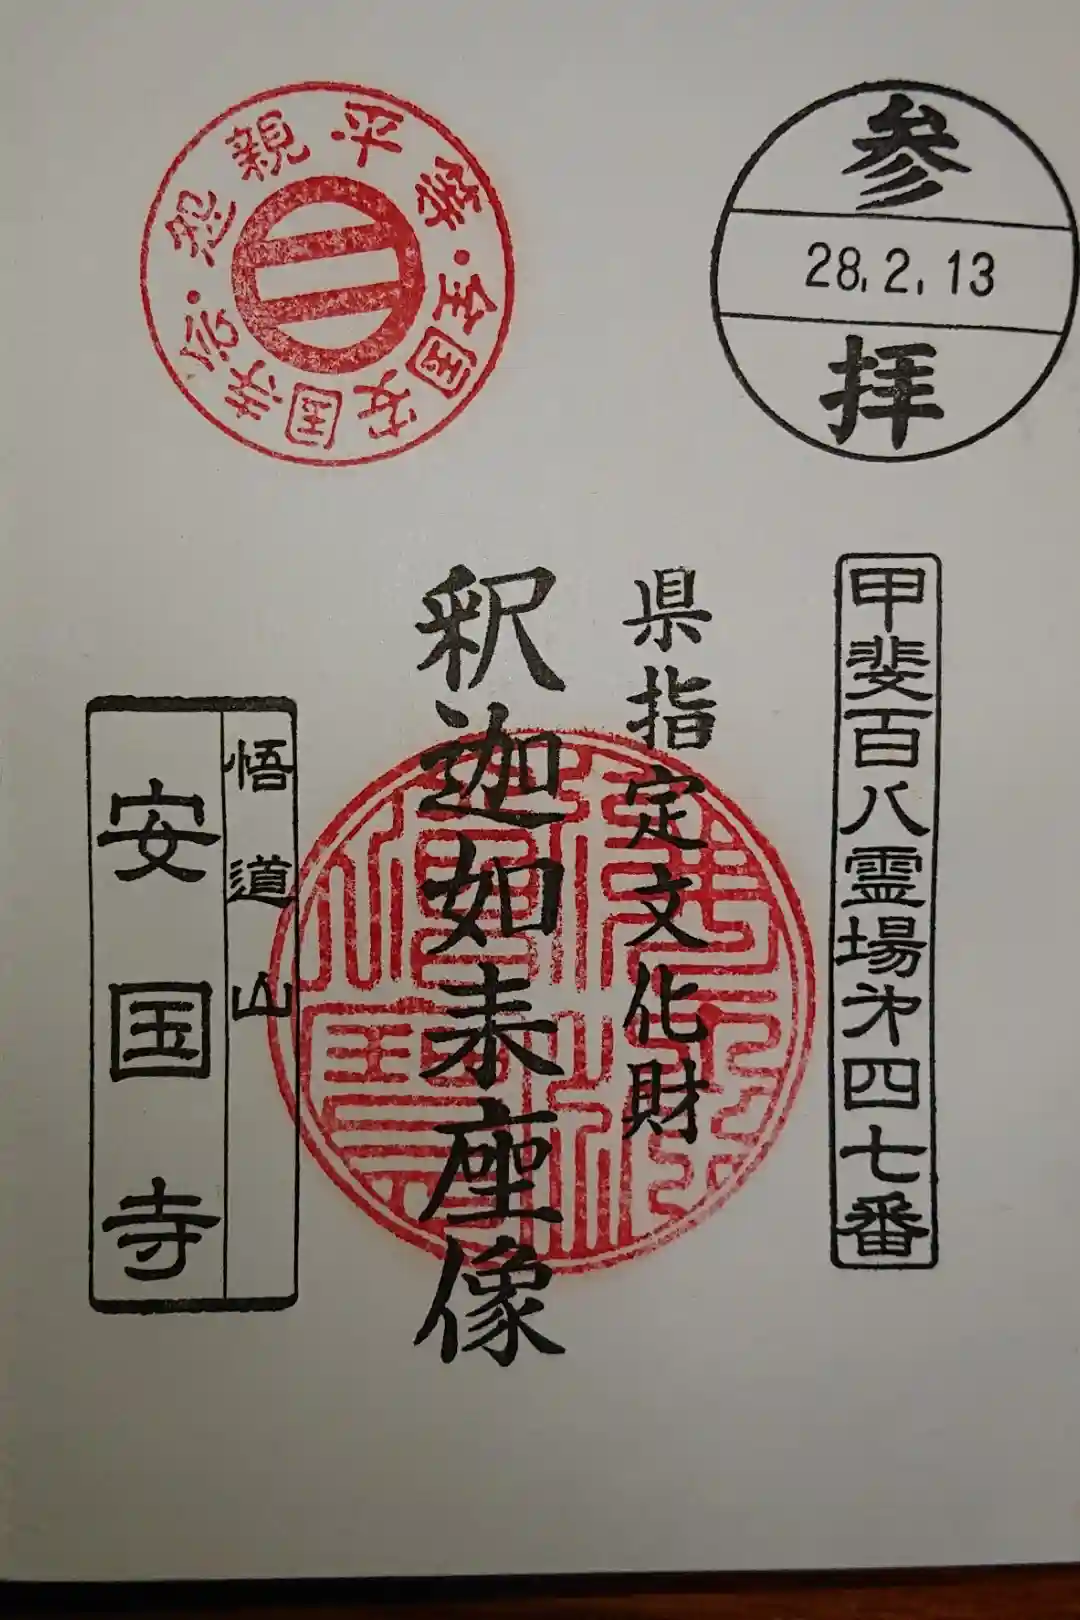 参
28.2.13
拝
怨親平等・全国安国寺会・
甲斐百八霊場第四七番
県指定文化財
釈迦如来座像
悟道山
安国寺